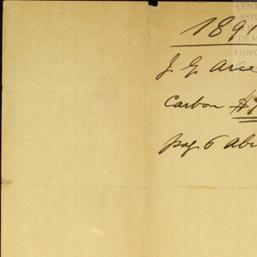 1891
J. G. Arce
Carbon #
pag. 6 Abr